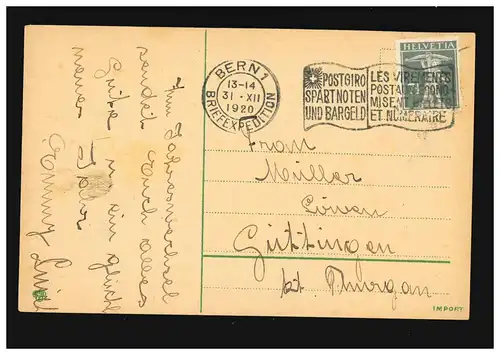 BERN 1
13-14
31·XII
1920
BRIEFEXPEDITION
POSTGIRO
SPART NOTEN
UND BARGELD
LES VIREMENTS
POSTAUX
ET NUMERAIRE
HELVETIA
Frau
Müller
Löwen
Güttingen
kt. Thurgau
IMPORT
Zum Jahreswechsel
sendet Euch alles
Gute u. ein glückl.
neues Jahr
Emmy